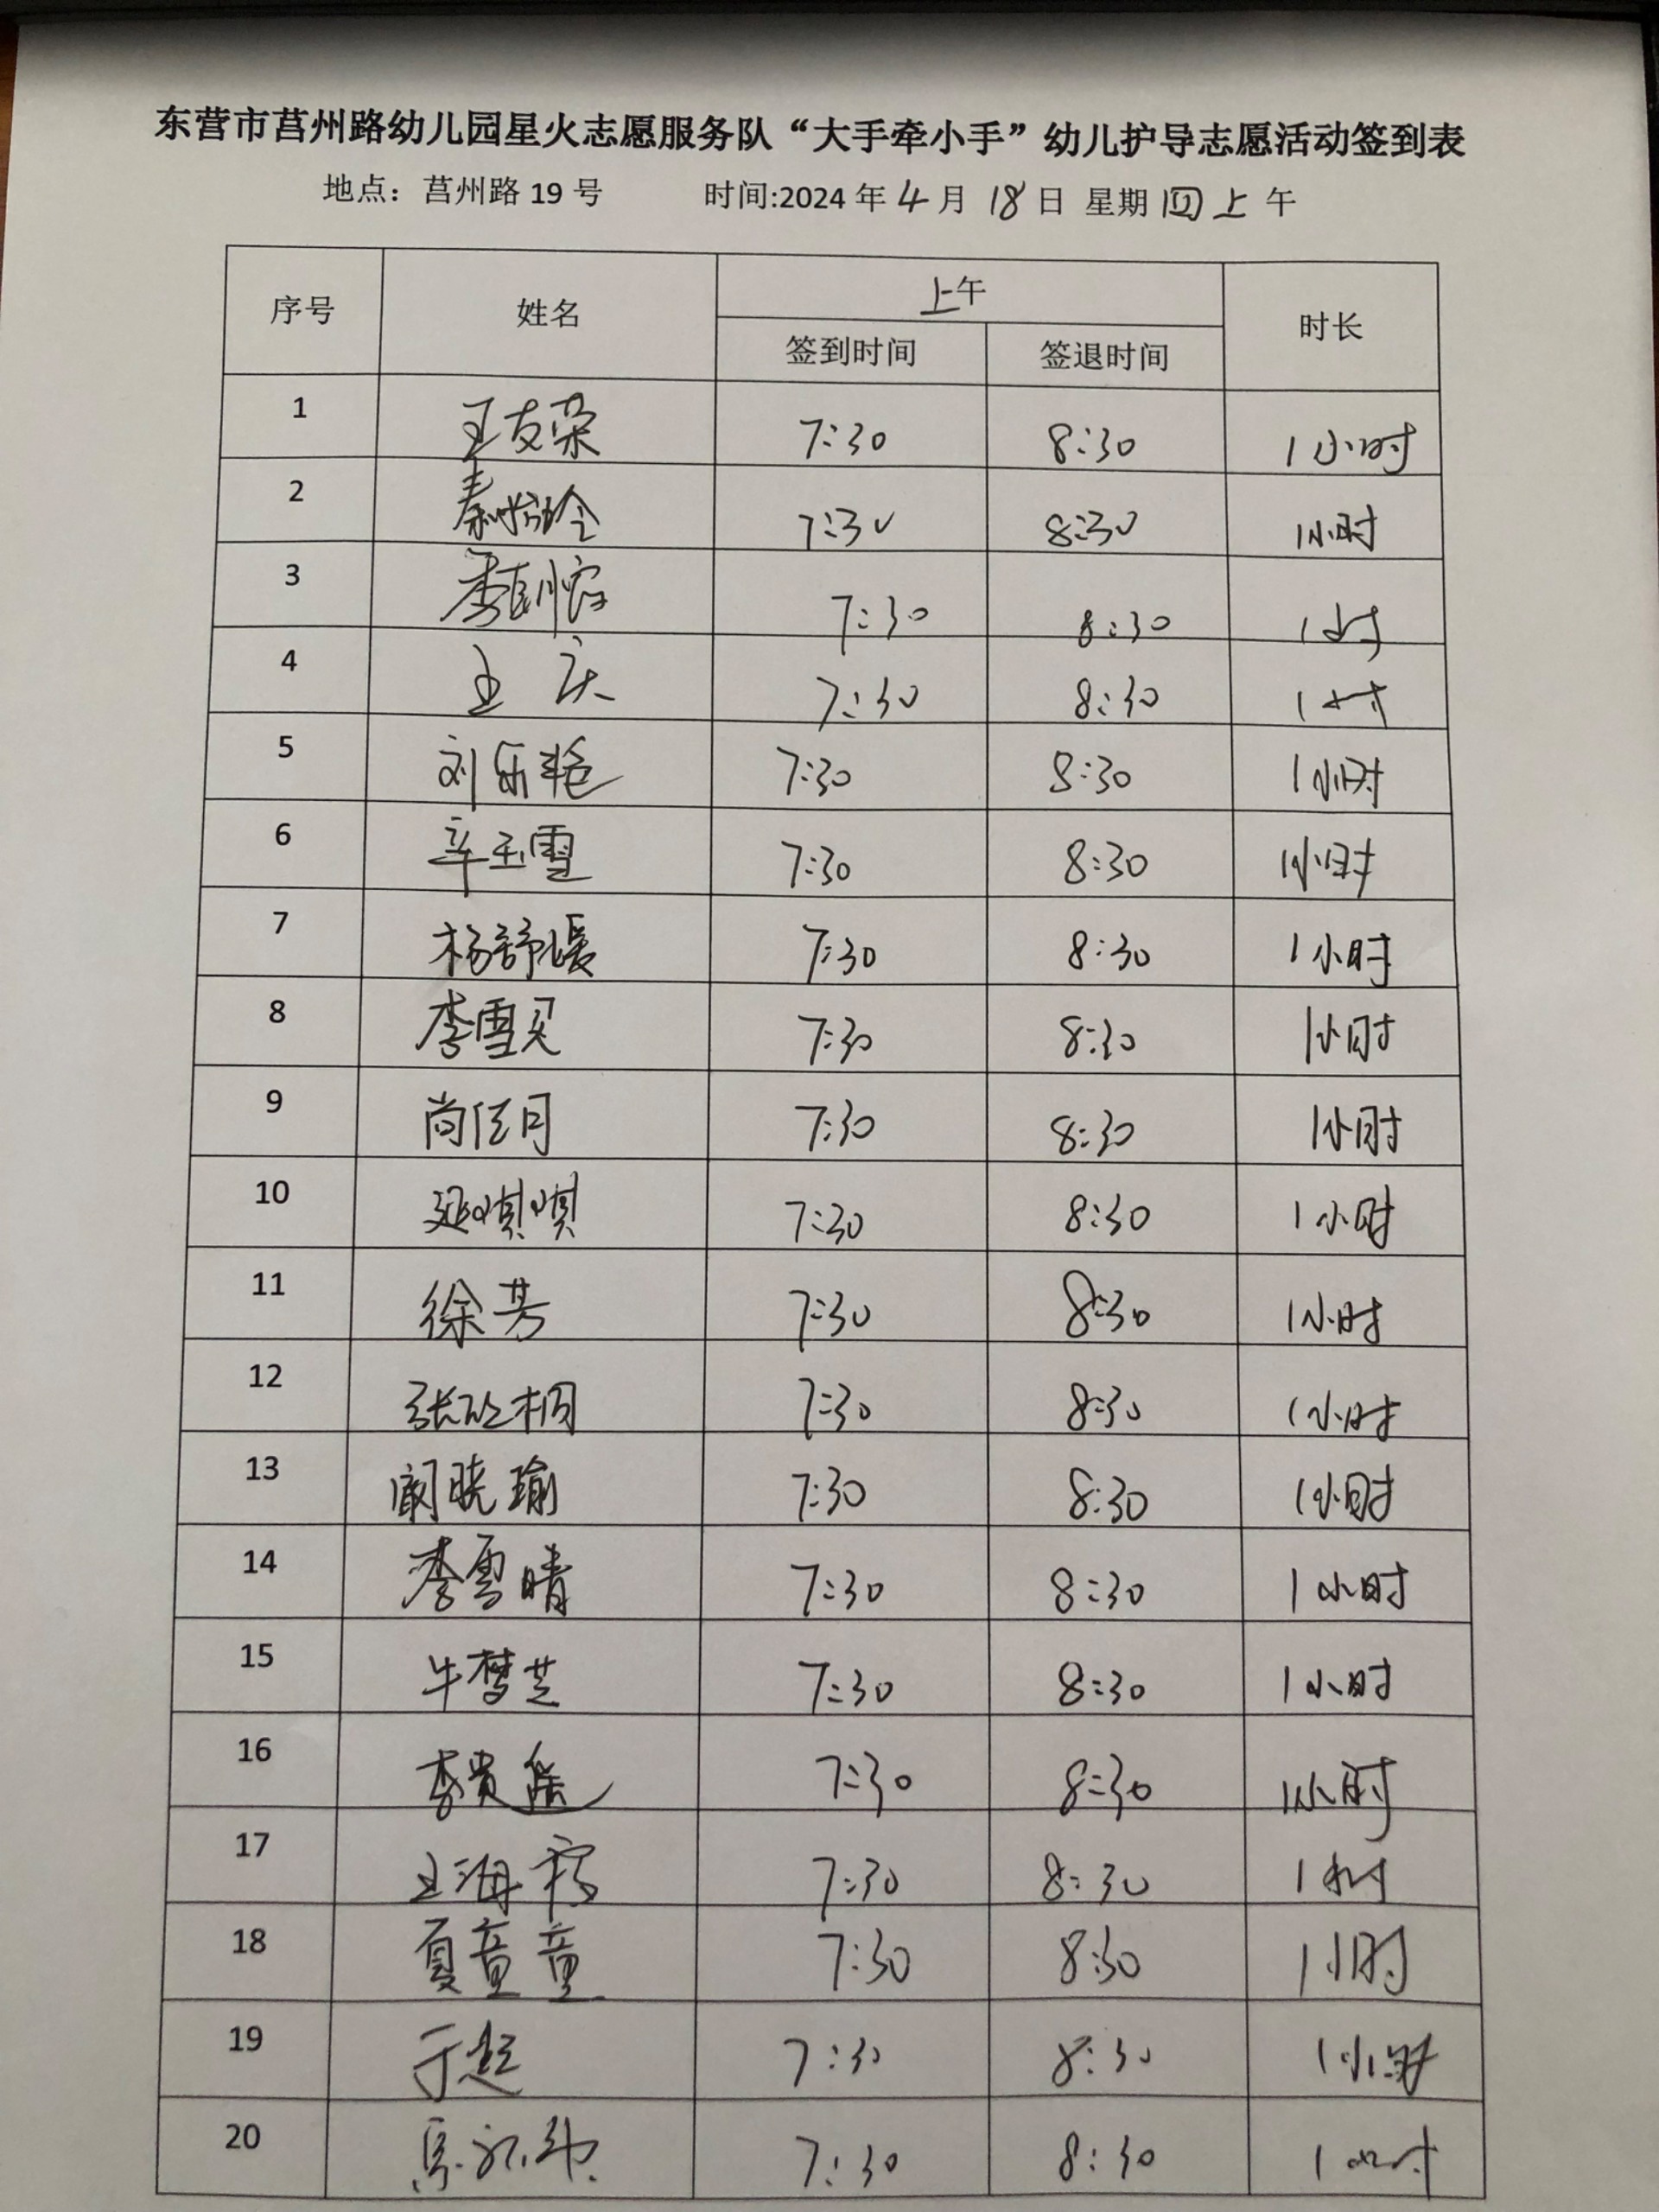 东营市莒州路幼儿园星火志愿服务队“大手牵小手”幼儿护导志愿活动签到表
地点：莒州路 19 号 时间:2024 年 4 月 18 日 星期 四 上 午
序号 姓名 上午 时长
签到时间 签退时间
1 王友荣 7:30 8:30 1小时
2 秦 玲 7:30 8:30 1小时
3 李 7:30 8:30 1小时
4 王庆 7:30 8:30 1小时
5 刘乐艳 7:30 8:30 1小时
6 辛玉雪 7:30 8:30 1小时
7 杨舒媛 7:30 8:30 1小时
8 李雪 7:30 8:30 1小时
9 尚佰月 7:30 8:30 1小时
10 延唭唭 7:30 8:30 1小时
11 徐芳 7:30 8:30 1小时
12 张 桐 7:30 8:30 1小时
13 阚晓瑜 7:30 8:30 1小时
14 李雪晴 7:30 8:30 1小时
15 牛梦芝 7:30 8:30 1小时
16 李贵 7:30 8:30 1小时
17 王海 7:30 8:30 1小时
18 夏童童 7:30 8:30 1小时
19 于超 7:30 8:30 1小时
20 7:30 8:30 1小时